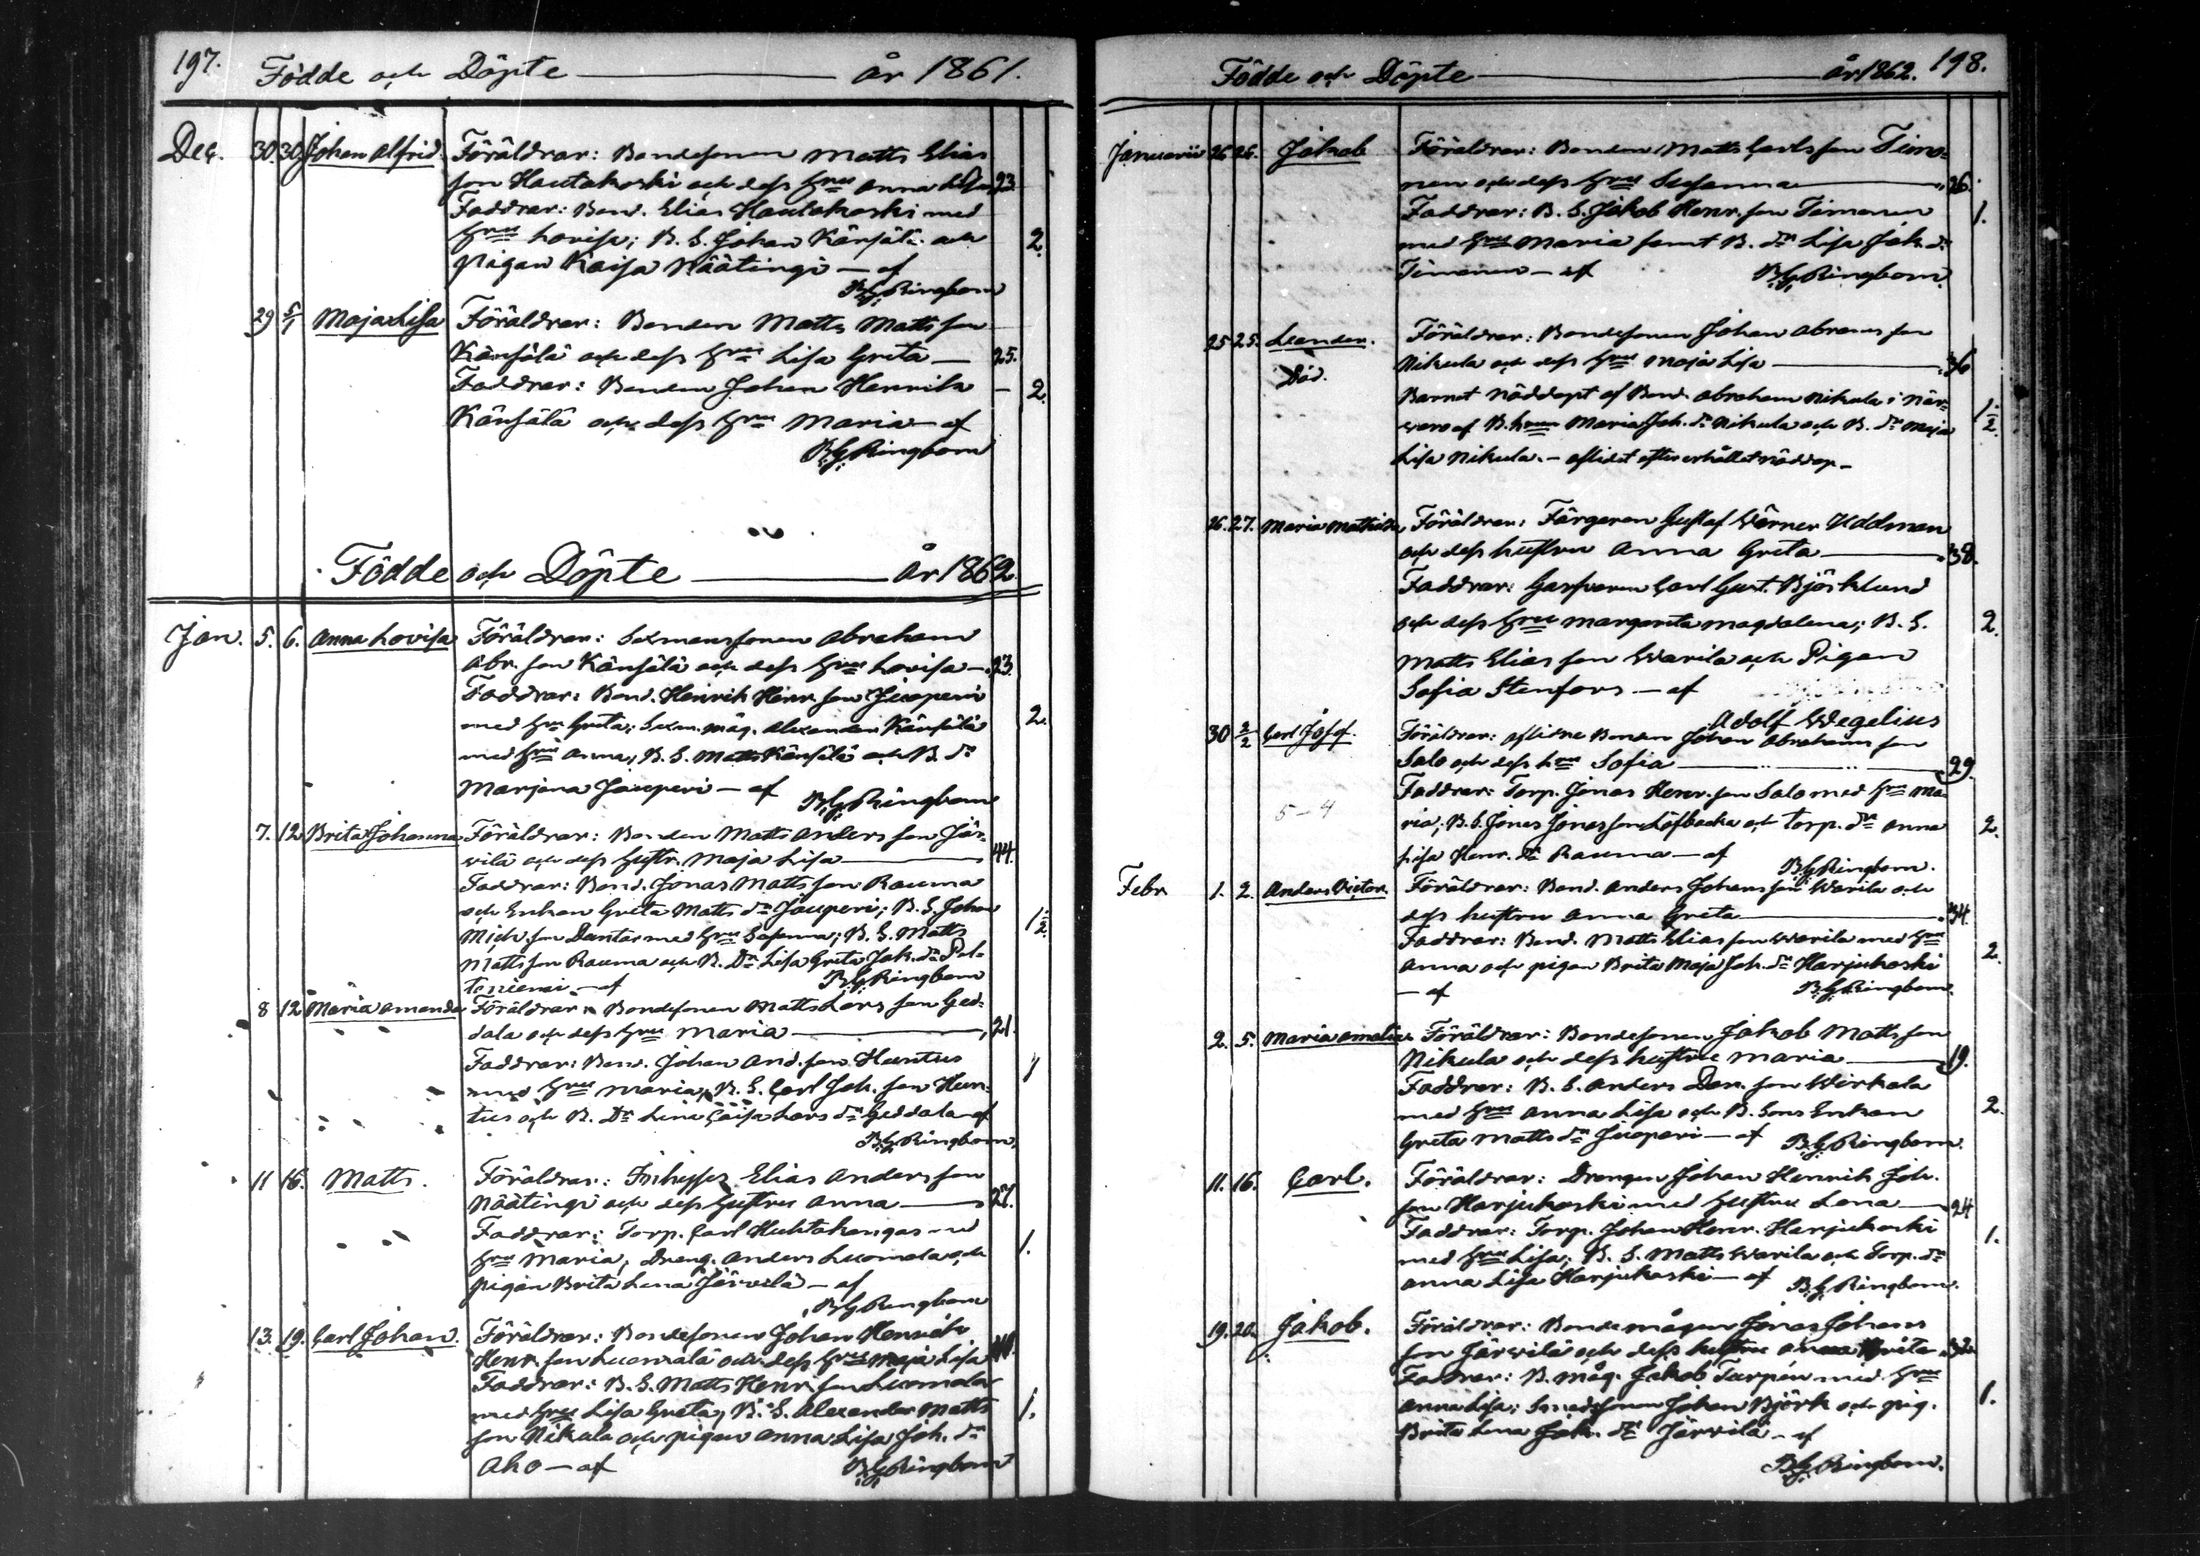 197. Födde och Döpte år 1861.
Dec. 30. 30. Johan Alfrid. Föräldrar: Bondesonen Matts Elias
son Hautakoski och dess hru Anna Lisa 23.
Faddrar: Bond. Elias Hautakoski med
hru Lovisa; B. S. Johan Känsälä och 2.
Pigan Kaisa Näätingi — af
B. G. Ringbom
29 5/1 Maja Lisa Föräldrar: Bonden Matts Matts son
Känsälä och dess hru Lisa Greta — 25.
Faddrar: Bonden Johan Henrik — 2.
Känsälä och dess hru Maria — af
B. G. Ringbom
Födde och Döpte År 1862
Jan. 5. 6. Anna Lovisa Föräldrar: Sexmanssonen Abraham
Abr. son Känsälä och dess hru Lovisa — 23.
Faddrar: Bond. Henrik Henr. son Juoperi
med hru Greta; Sexm. måg. Alexander Känsälä 2.
med hru Anna; B. S. Matts Känsälä och B. dr
Marjana Jouperi — af B. G. Ringbom
7. 12 Brita Johanna Föräldrar: Bonden Matts Anders son Jär-
vilä och dess hustr. Maja Lisa 44.
Faddrar: Bond. Jonas Matts son Rauma
och Enkan Greta Matts dr Jouperi; B. S. Johan
Mich. son Dantas med hru Susanna; B. S. Matts 1/2.
Matts son Rauma och B. Dr Lisa Greta Joh. dr Pel-
toniemi — af B. G. Ringbom
8 12 Maria Amanda Föräldrar: Bondesonen Matts Lars son Ged-
dala och dess hru Maria 21.
Faddrar: Bond. Johan And. son Huntus
med hru Maria, B. S. Carl Joh. son Hun- 1
tus och B. Dr Lena Caisa Lars dr Geddala af
B. G. Ringbom.
11 16. Matts. Föräldrar: Inhyses Elias Anders son
Näätingi och dess hustru Anna 27.
Faddrar: Torp. Carl Huhtakangas med
hru Maria, Dreng. Anders Luomala och 1.
pigan Brita Lena Järvelä — af
B G Ringbom
13. 19. Carl Johan. Föräldrar: Bondesonen Johan Henrik
Henr. son Luomala och dess hru Maja Lisa
Faddrar: B. S. Matts Henr. son Luomala
med hru Lisa Greta, B. S. Alexander Matts 1.
son Nikula och pigan Anna Lisa Joh. dr
Aho — af B. G. Ringbom
Födde och Döpte år 1862. 198.
Januarii 26 26. Jakob Föräldrar: Bonden Matts Carls son Timo-
nen och dess hru Susanna 26.
Faddrar: B. S. Jakob Henr. son Timonen 1.
med hru Maria samt B. dr Lisa Joh. dr
Timonen — af B. G. Ringbom.
25 25. Leander. Föräldrar: Bondesonen Johan Abrams son
Nikula och dess hru Maja Lisa 36
Död. Barnet nöddöpt af Bond. Abraham Nikula i när-
varo af B. hrun Maria Joh. dr Nikula och B. dr Maja 1/2.
Lisa Nikula. — aflidet efter erhållet nöddop —
26. 27. Maria Mathilda Föräldrar: Färgaren Gustaf Werner Uddman
och dess hustru Anna Greta 38.
Faddrar: Garfvaren Carl Gust. Björklund
och dess hru Margareta Magdalena; B. S. 2.
Matts Elias son Warila och Pigan
Sofia Stenfors — af
Adolf Wegelius
30 2/2 Carl Josef. Föräldrar: aflidne Bonden Johan Abrahams son
Salo och dess hru Sofia 29
Faddrar: Torp. Jonas Henr. son Salo med hru Ma-
5 – 4 ria; B. S. Jonas Jonas son Löfbacka och Torp. dr Anna 2.
Lisa Henr. dr Rauma — af B. G. Ringbom.
Febr 1. 2. Anders Victor. Föräldrar: Bond. Anders Johans son Warila och
dess hustru Anna Greta 34.
Faddrar: Bond. Matts Elias son Warila med hru
Anna och pigan Brita Maja Joh. dr Harjukoski 2.
— af B. G. Ringbom.
2. 5. Maria Amalia Föräldrar: Bondesonen Jakob Matts son
Nikula och dess hustru Maria 19.
Faddrar: B. S. Anders Dan. son Wirkala
med hru Anna Lisa och B. Sons Enkan 2.
Greta Matts dr Juoperi — af B. G. Ringbom.
11. 16. Carl. Föräldrar: Drengen Johan Henrik Joh.
son Harjukoski med hustru Lena 24
Faddrar: Torp. Johan Henr. Harjukoski 1.
med hru Lisa; B. S. Matts Warila och Torp. dr
Anna Lisa Harjukoski — af B. G. Ringbom.
19. 20. Jakob. Föräldrar: Bondemågen Jonas Johans
son Järvilä och dess hustru Anna Brita 32
Faddrar: B. måg. Jakob Turpén med hru
Anna Lisa; Smedssonen Johan Björk och pig. 1.
Brita Lena Joh. dr Järvilä — af
B. G. Ringbom.